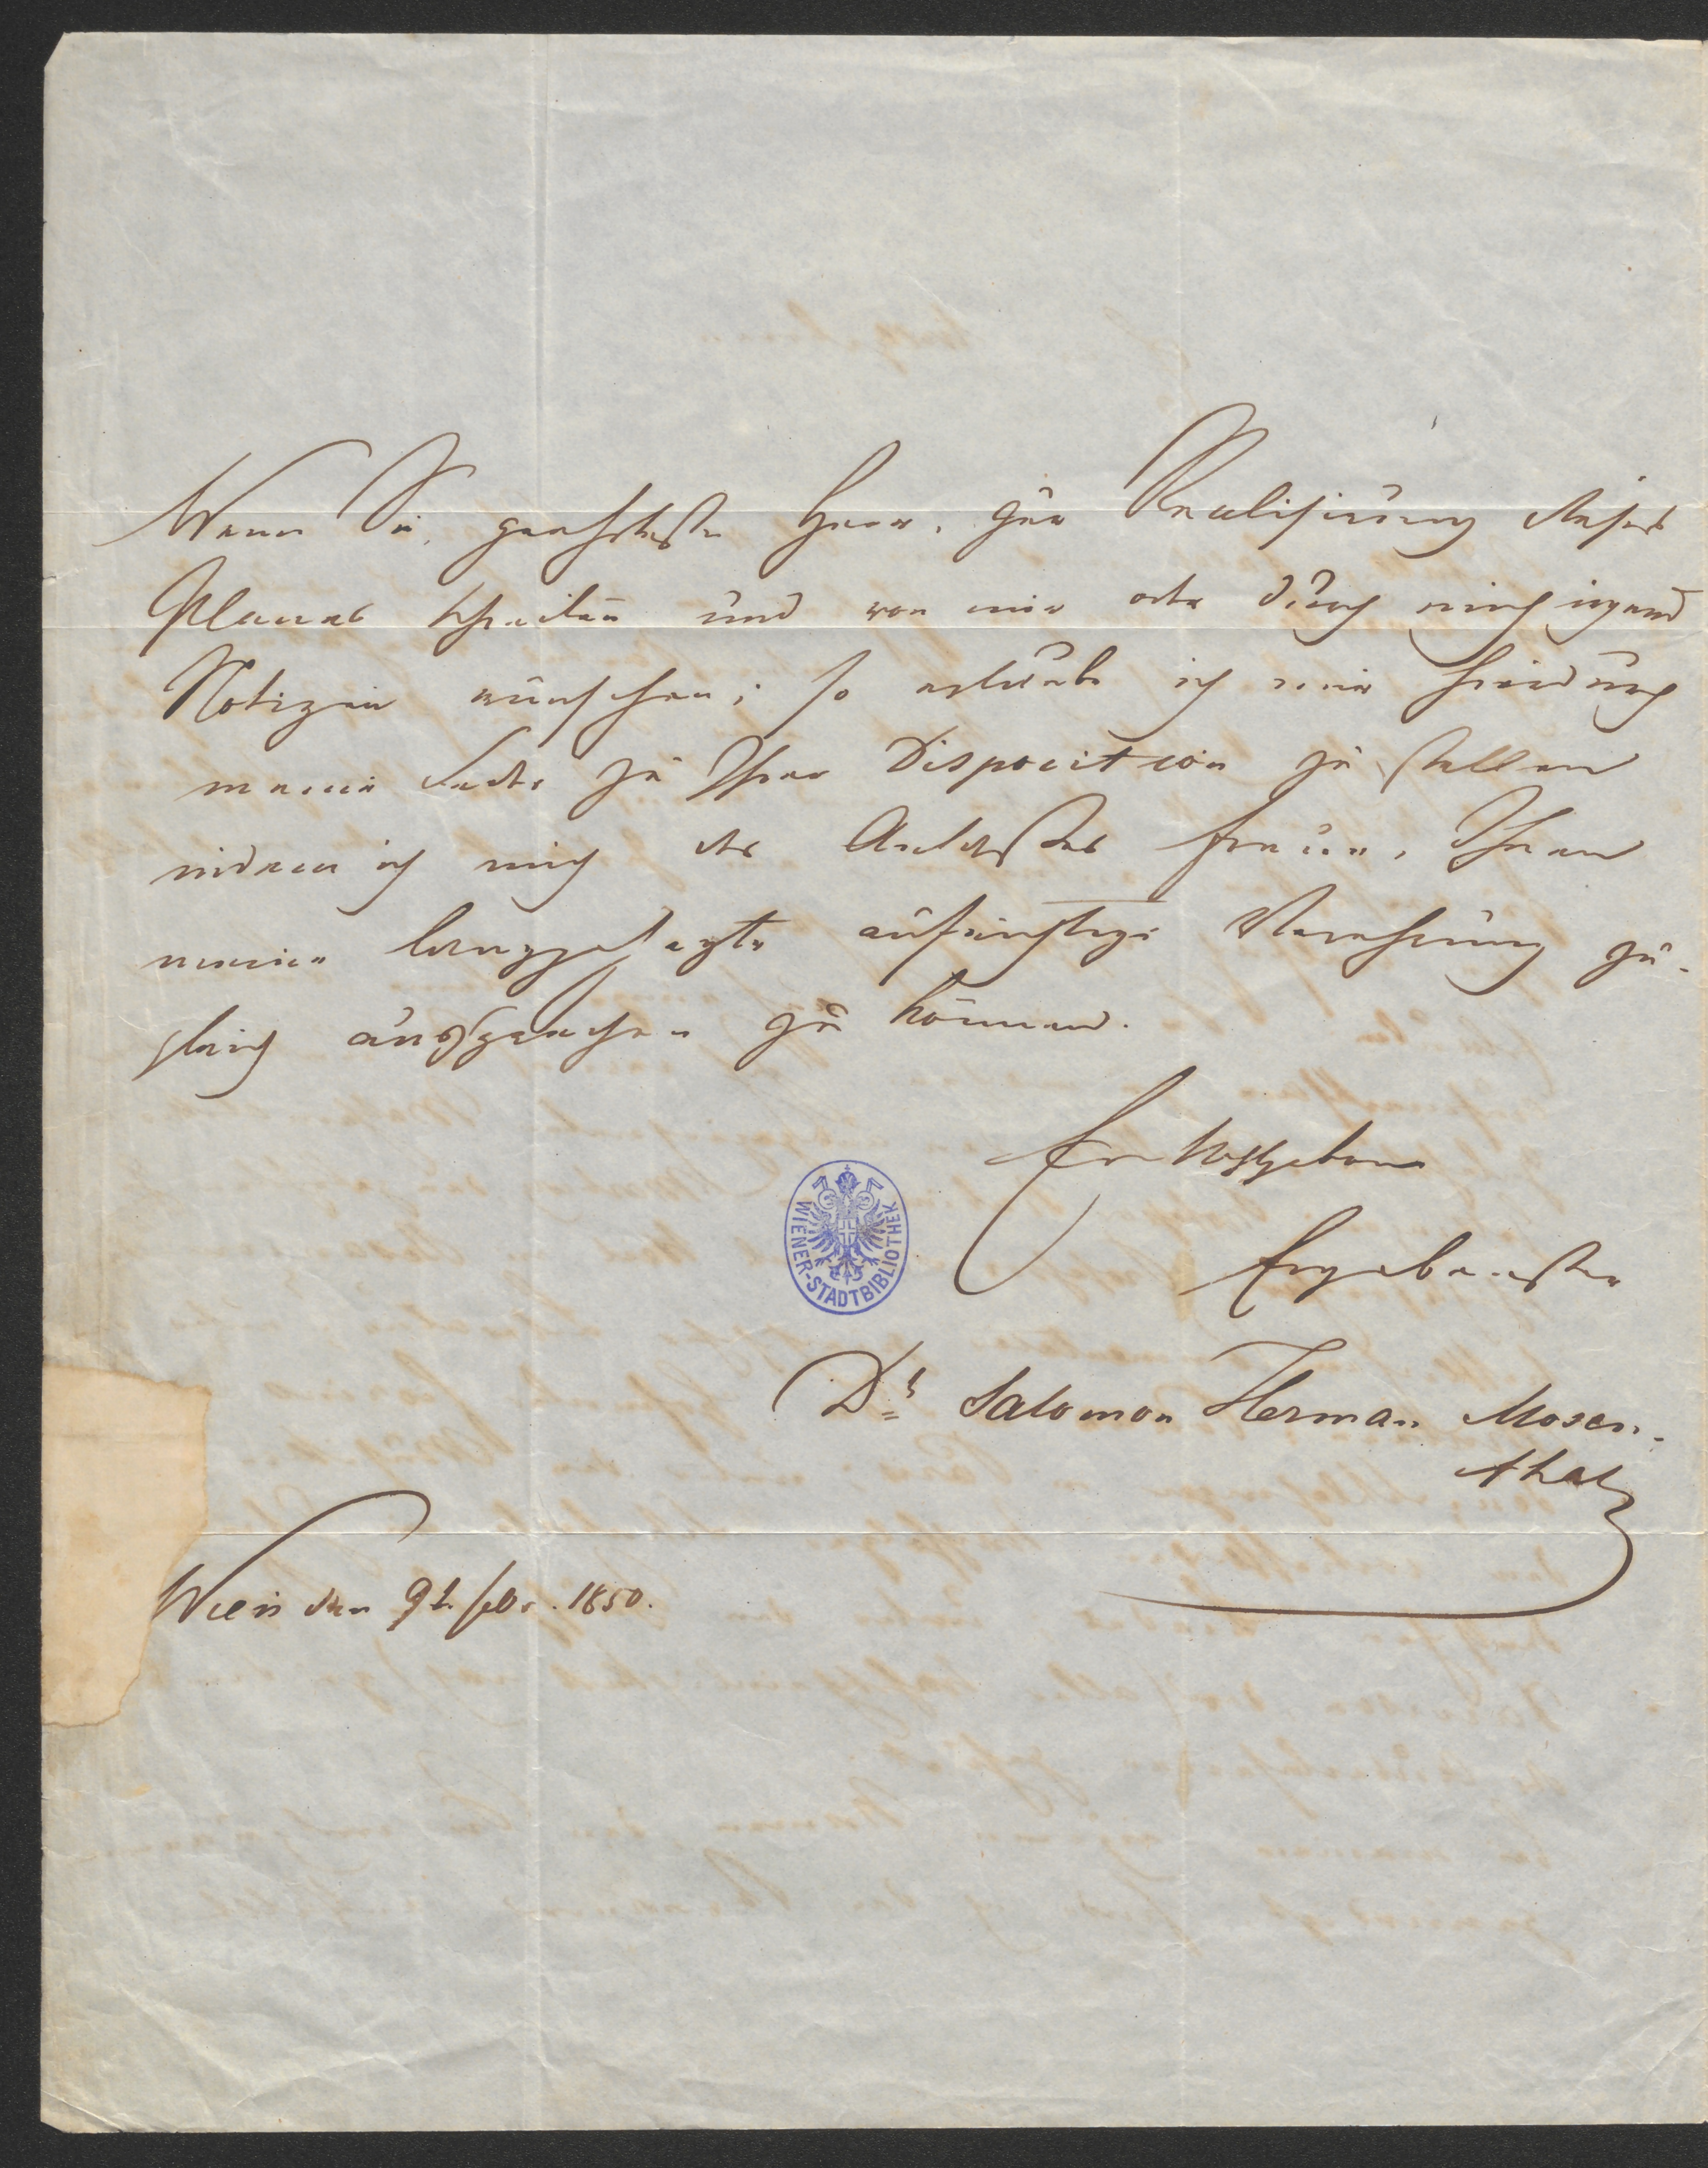 Wenn Sie, geehrtester Herr, zur Realisirung dieses
Planes schreiten und von mir oder durch mich irgend
Notizen wünschen; so erlaube ich mir hiedurch
meine Feder zu Ihrer Disposition zu stellen
indem ich mich des Anlasses freue, Ihnen
meine langgehegte aufrichtige Verehrung zu-
gleich aussprechen zu können.
Ew Wohlgeboren
Ergebenster
Dr Salomon Herman Mosen-
thal
Wien den 9t. febr. 1850.
WIENER-STADTBIBLIOTHEK